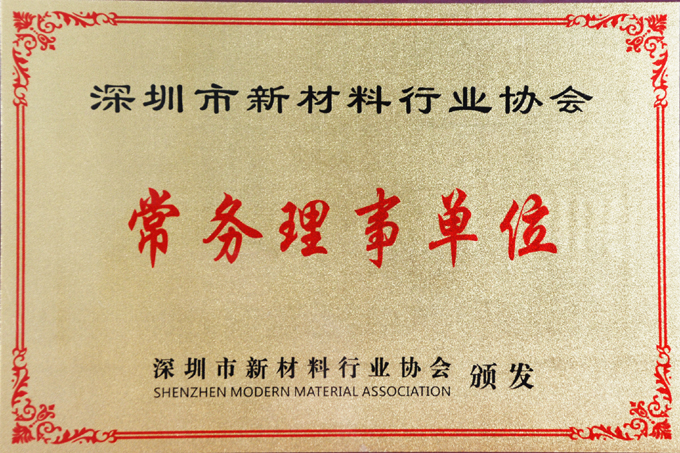 深圳市新材料行业协会
常务理事单位
深圳市新材料行业协会 颁发
SHENZHEN MODERN MATERIAL ASSOCIATION